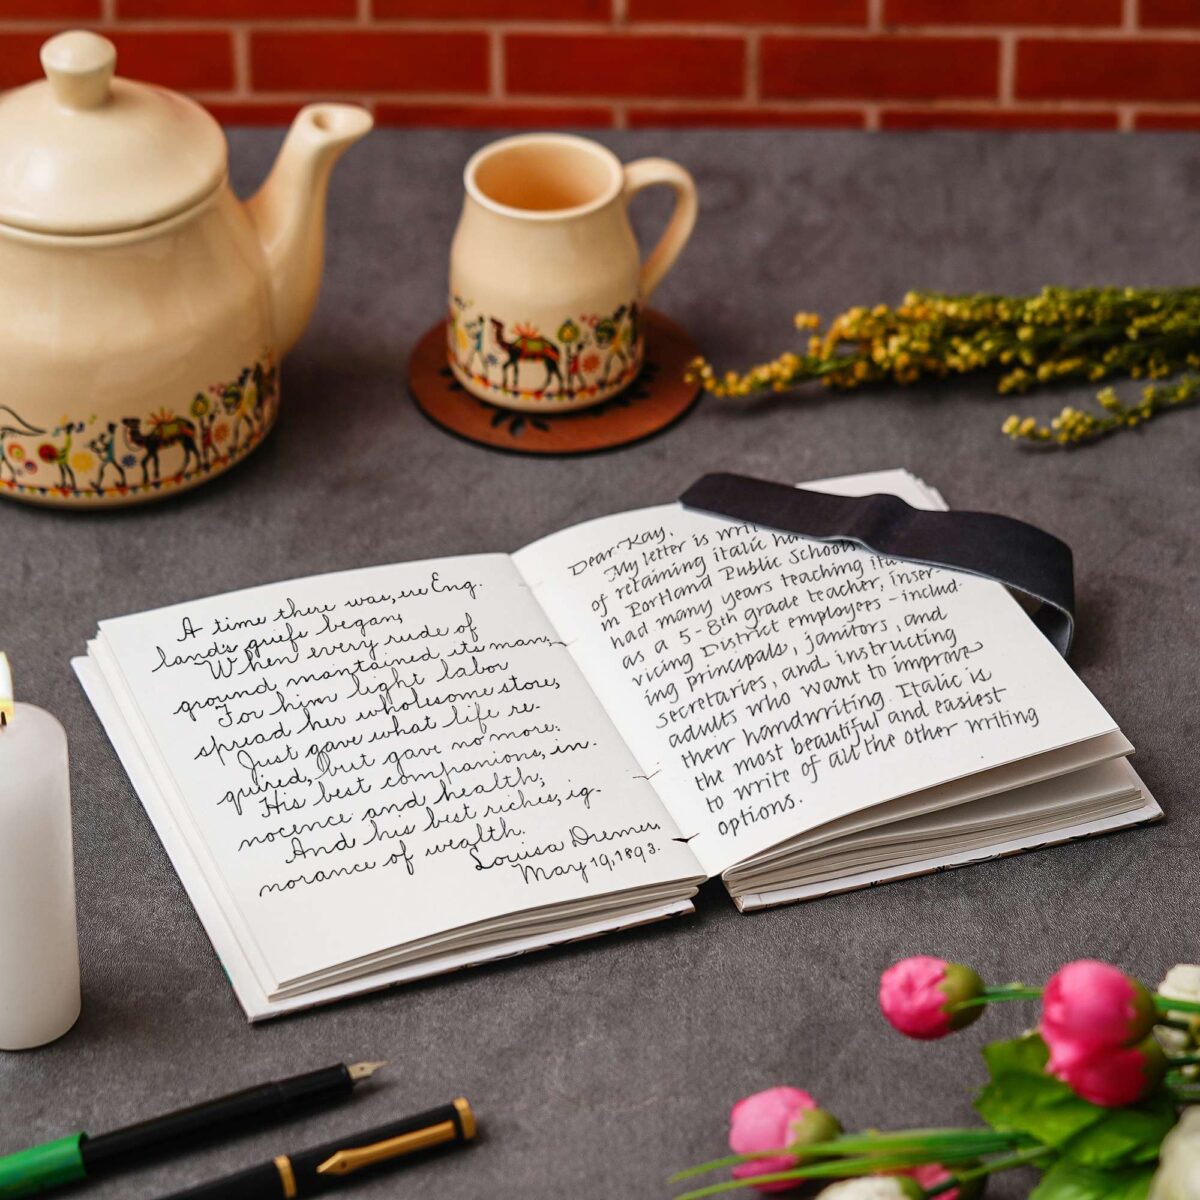 A time there was, ere Eng.
land's griefs began,
When every rude of
ground maintained its man;
For him light labor
spread her wholesome store,
Just gave what life re-
quired, but gave no more:
His best companions, in.
nocence and health;
And his best riches, ig.
norance of wealth.
Louisa
May 19, 1893.
Dear Kay,
My letter is
of retaining italic
in Portland Public Schools
had many years teaching
as a 5-8th grade teacher, inser-
vicing District employees - includ-
ing principals, janitors, and
secretaries, and instructing
adults who want to improve
their handwriting. Italic is
the most beautiful and easiest
to write of all the other writing
options.